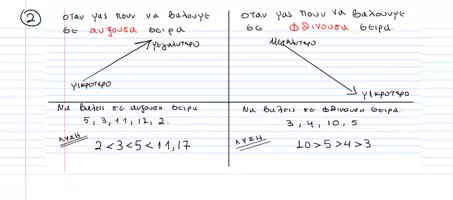 2
οταν μας πουν να βαλουμε
σε αυξουσα σειρα
μεγαλυτερο
μικροτερο
Να βαλεις σε αυξουσα σειρα
5, 3, 11, 17, 2.
ΛΥΣΗ
2 < 3 < 5 < 11, 17
οταν μας πουν να βαλουμε
σε φθινουσα σειρα.
Μεγαλυτερο
μικροτερο
Να βαλεις σε φθινουσα σειρα.
3, 4, 10. 5
ΛΥΣΗ
10 > 5 > 4 > 3